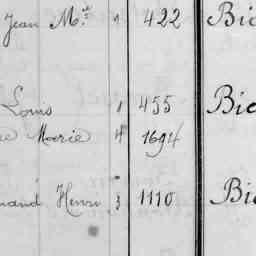 Jean M.el 1 422 Bie
Louis 1 455 Bie
Marie 4 1694
mand Henri 3 1110 Bie